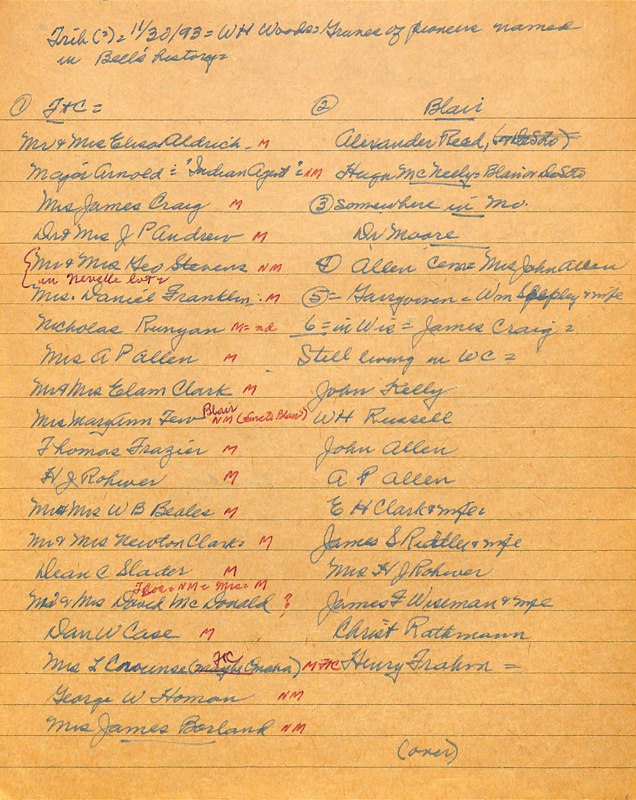 Trib (=) = 11/30/93 = WH Woods = Graves of pioneers named
in Bell's history =
① F+C =
Mr & Mrs Elison Aldrich - M
Major Arnold = "Indian Agent" = NM
Mrs James Craig M
Dr & Mrs J P Andrew M
Mr & Mrs Geo Stevens NM
in Nevelle lot =
Mrs. Daniel Franklin - M
Nicholas Runyan M = nd
Mrs A P Allen M
Mr & Mrs Elam Clark M
Mrs Mary Ann Few Blair NM
Thomas Frazier M
H J Rohwer M
Mr & Mrs W B Beales M
Mr & Mrs Newton Clark = M
Dean C Slader M
Doc = NM = Mrs = M
Mr & Mrs David McDonald ?
Dan W Case M
Mrs L Crounse (maybe Omaha) FtC M FtC
George W Homan NM
Mrs James Borland NM
② Blair
Alexander Reed, (or DeSoto)
Hugh McNeely = Blair or DeSoto
③ Somewhere in Mo.
Dr Moore
④ Allen Cem = Mrs John Allen
⑤ = Garryowen = Wm & wife
6 = in Wis = James Craig =
Still living in WC =
John Kelly
WH Russell
John Allen
A P Allen
E H Clark & wife
James S Riddley & wife
Mrs H J Rohwer
James F Wiseman & wife
Christ Rathmann
Henry Frahm =
(over)